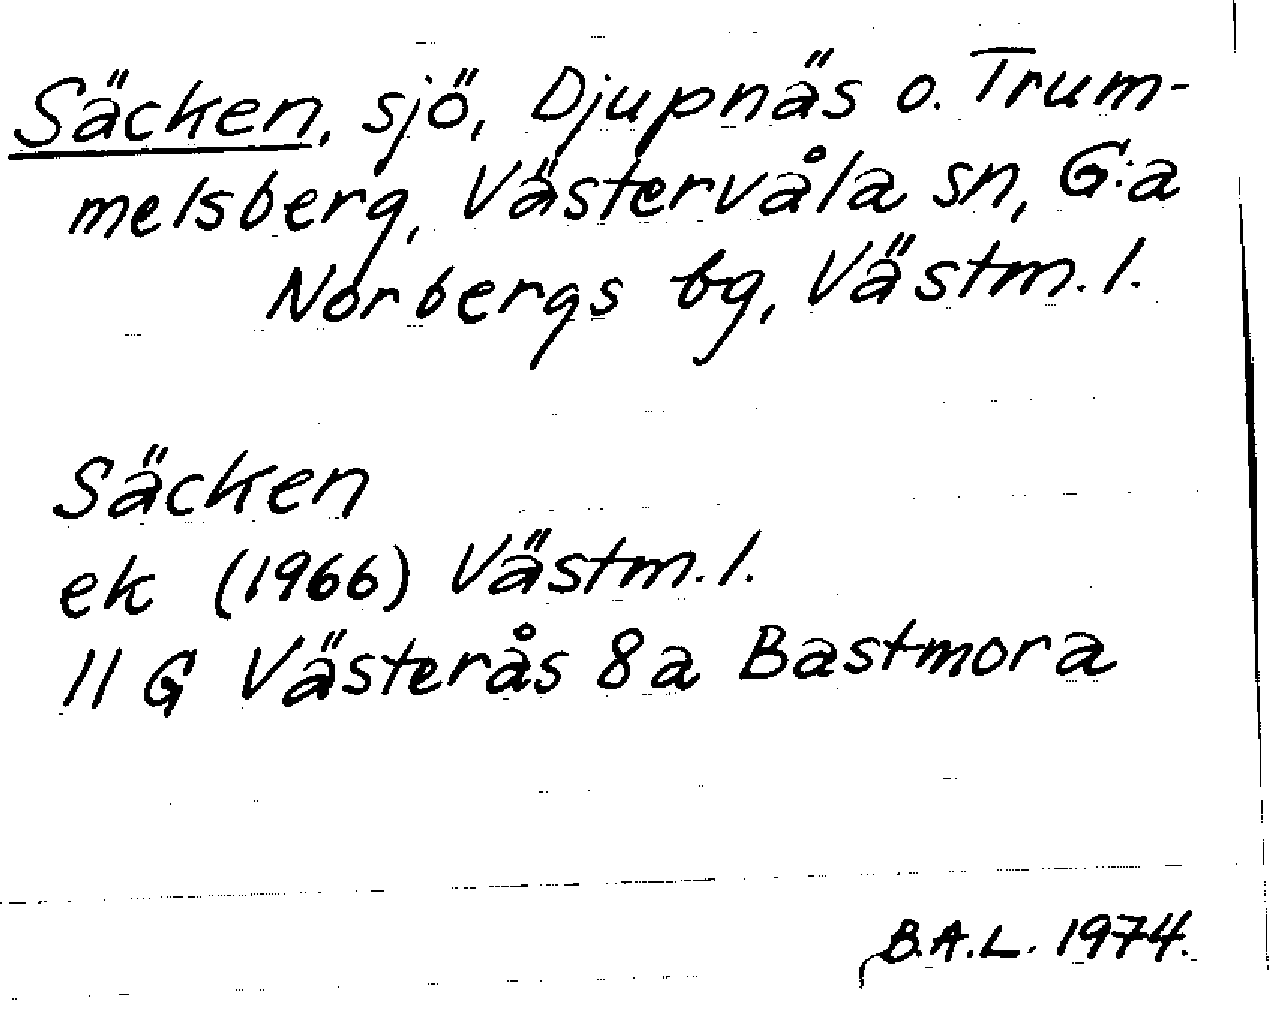 Säcken, sjö, Djupnäs o. Trum-
melsberg, Västervåla sn, G:a
Norbergs bg, Västm. l.
Säcken
ek (1966) Västm. l.
11 G Västerås 8a Bastmora
B.A.L. 1974.